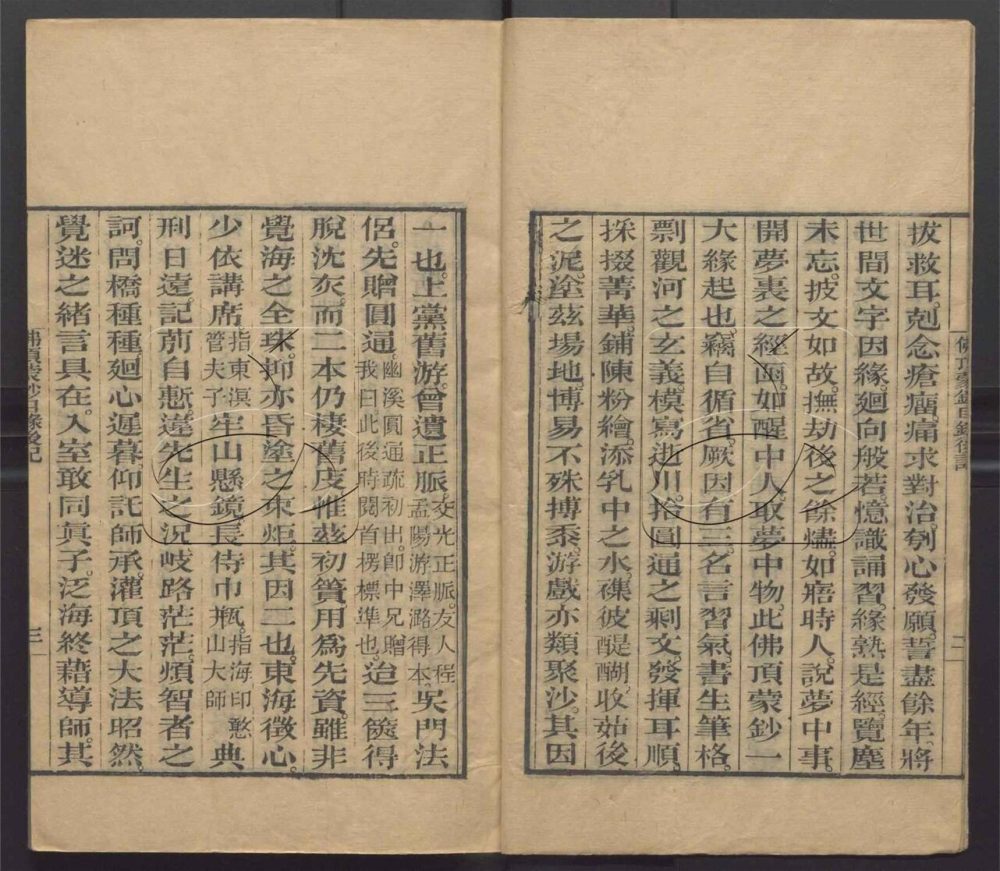 拔救耳。剋念瘡癅。痛求對治。刳心發願。誓盡餘年。將
世間文字因緣。廻向般若。憶識誦習。緣熟是經。覽塵
未忘。披文如故。撫劫後之餘燼。如寤時人。說夢中事。
開夢裏之經函。如醒中人。取夢中物。此佛頂蒙鈔一
大緣起也。竊自循省。厥因有三。名言習氣。書生筆格。
剽觀河之玄義。模寫逝川。拾圓通之剩文。發揮耳順。
採掇菁華。鋪陳粉繪。添乳中之水。礫彼醍醐。收姑後
之泥。塗茲塲地。博易不殊搏黍。游戲亦類聚沙。其因
佛頂蒙鈔目錄後記
二
一也。上黨舊游。曾遺正脈交光正脈。友人程孟陽游澤潞得本吳門法
侶。先贈圓通幽溪圓通疏初出。卽中兄贈我曰此後時閱首楞標準也治三篋得
脫沈灰。而二本仍棲舊庋。惟茲初簣。用爲先資。雖非
覺海之全珠。抑亦昏塗之束炬。其因二也。東海徵心。
少依講席指東溟管夫子牢山懸鏡。長侍巾瓶。指海印憨山大師典
刑日遠。記莂自慙。違先生之況。岐路茫茫。煩智者之
訶。問橋種種。廻心遲暮。仰託師承。灌頂之大法昭然。
覺迷之緖言具在。入室敢同眞子。泛海終藉導師。其
佛頂蒙鈔目錄後記
三